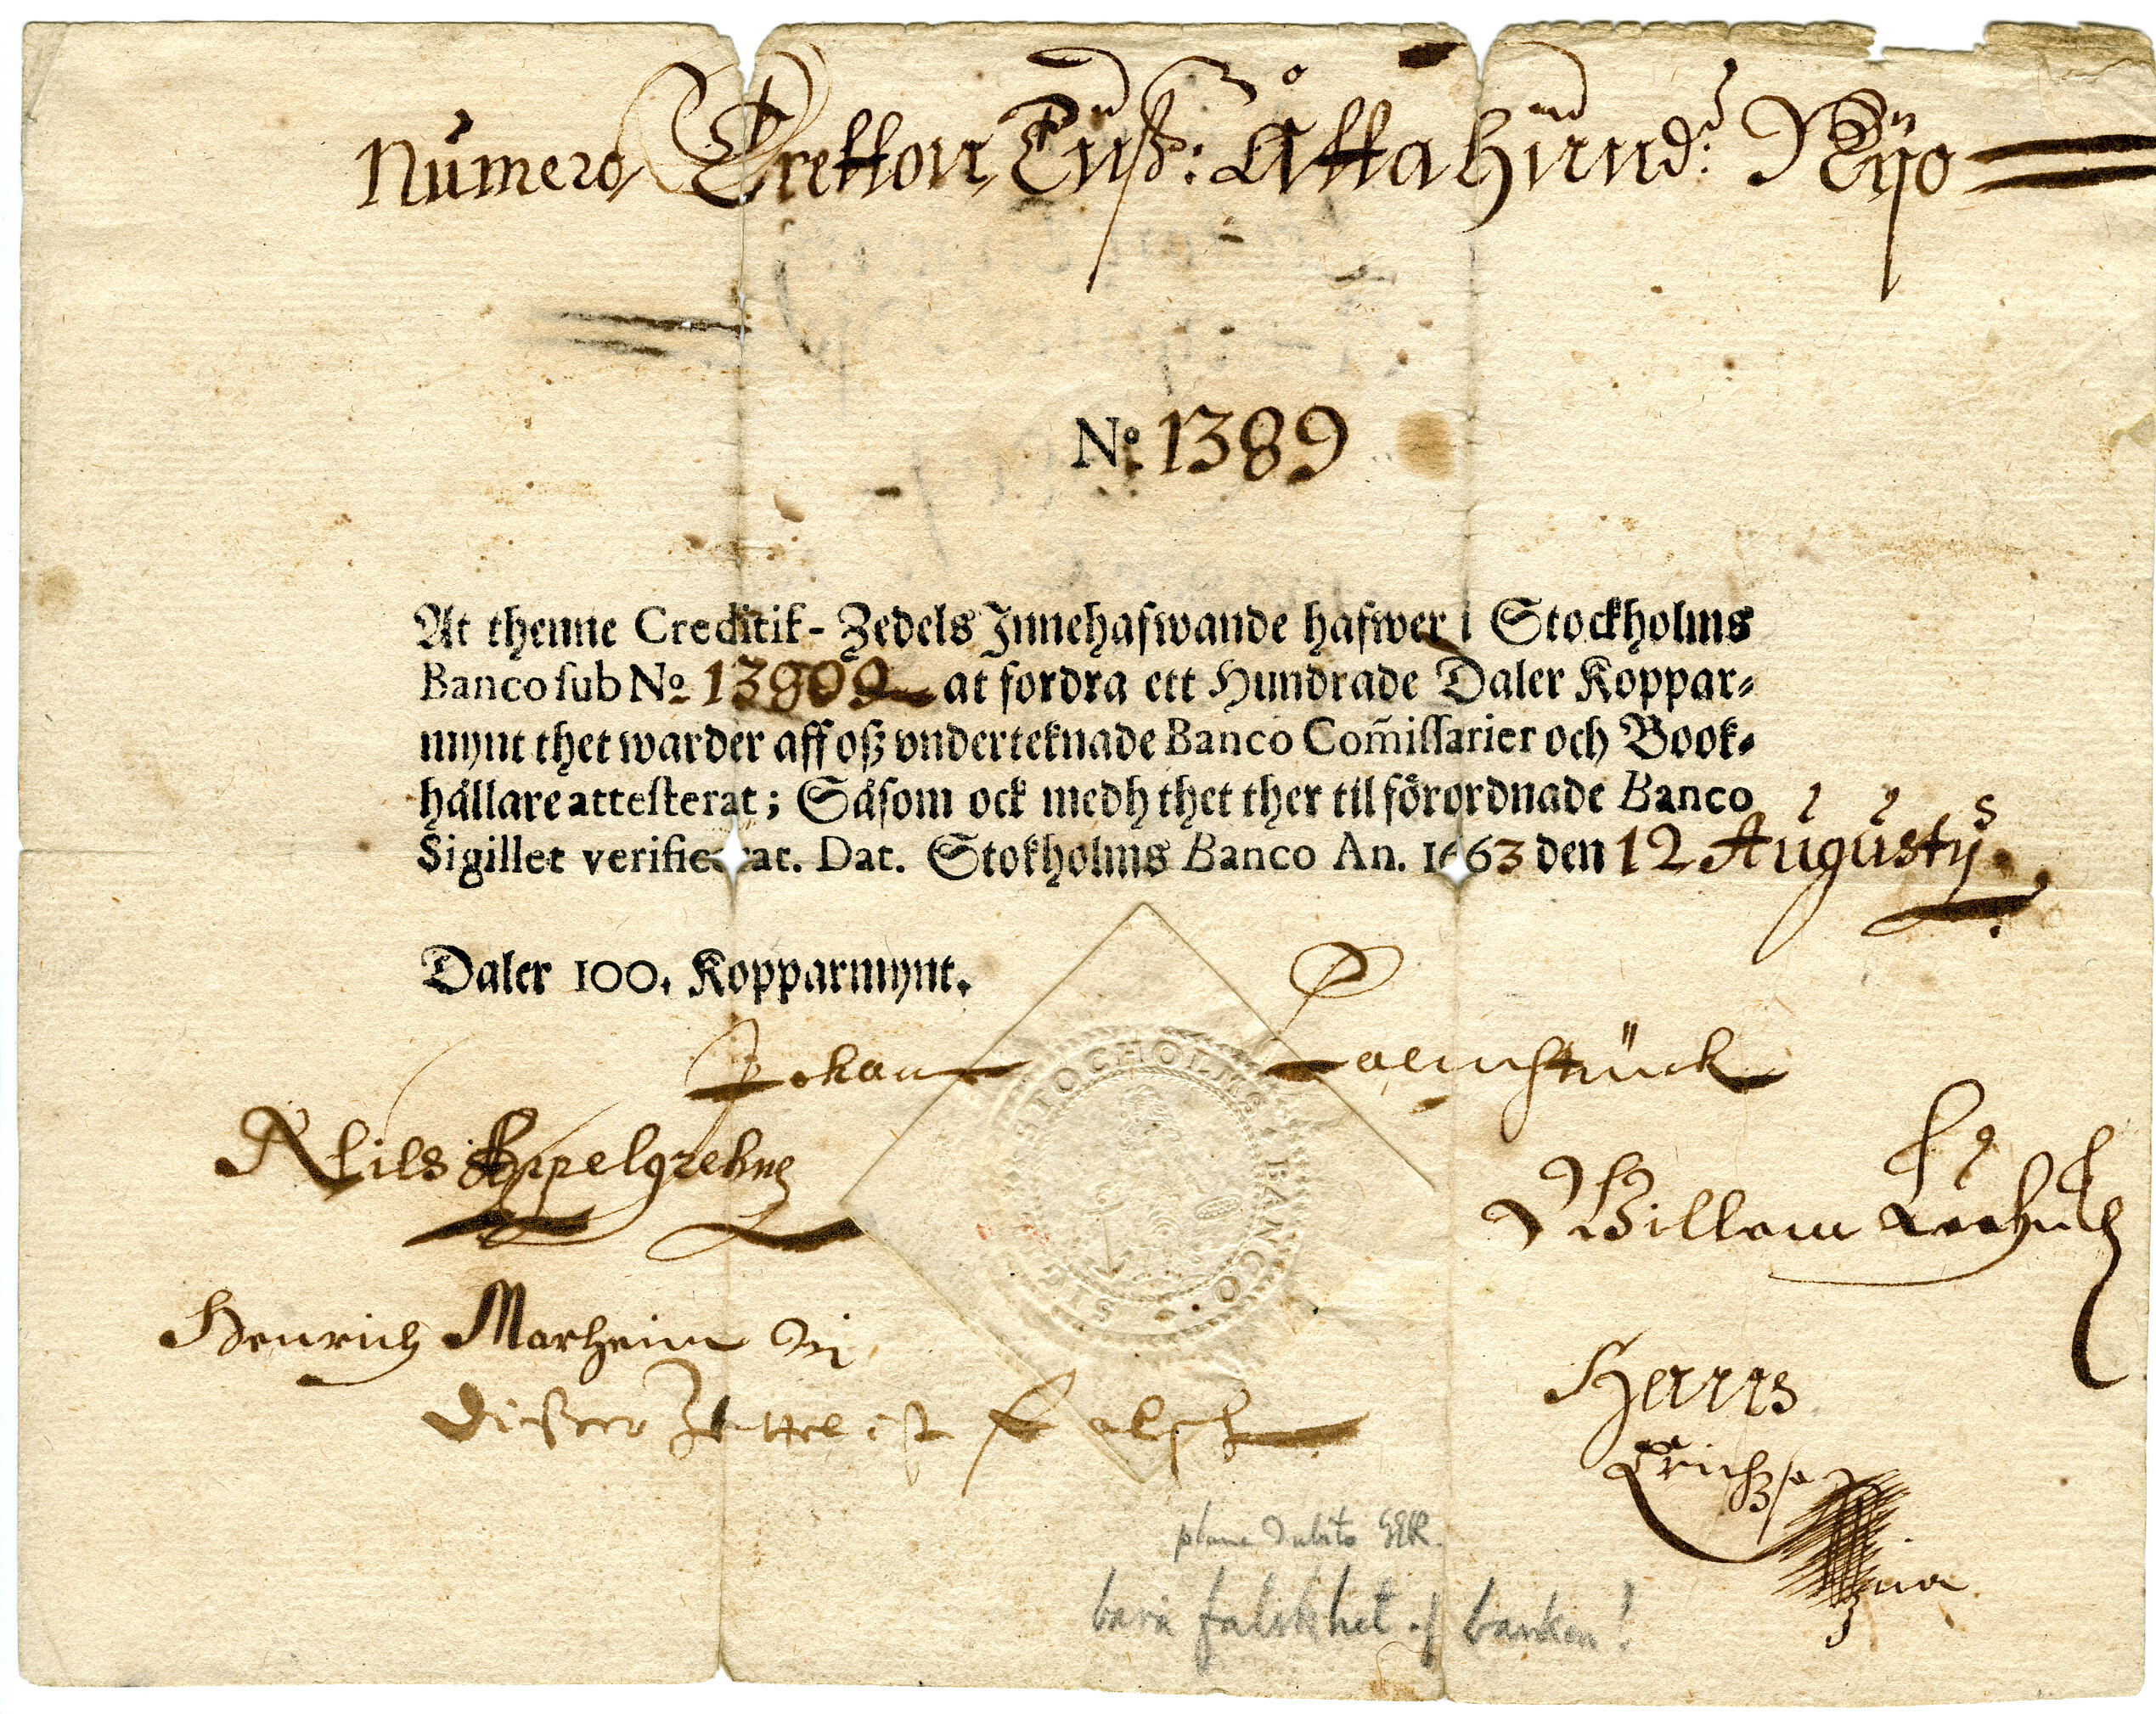 Numero Tretton Tuß: Åtta hund: Nijo
No. 1389
At thenne Creditif-Zedels Innehafwande hafwer i Stockholms
Banco sub No 13909 at fordra ett Hundrade Daler Koppar-
mynt thet warder aff oß vnderteknade Banco Com̃issarier och Book-
hållare attesterat; Såsom ock medh thet ther til förordnade Banco
Sigillet verificerat. Dat. Stokholms Banco An. 1663 den 12 Augustij
Daler 100. Kopparmynt.
Johan Palmstruck
STOCHOLMS BANCO SIG
Niels Appelgrehn
Willam
Henrich Marheim
Hanns
Dießer Zettel ist falsch
plane Dubito
bara falskhet af banken!